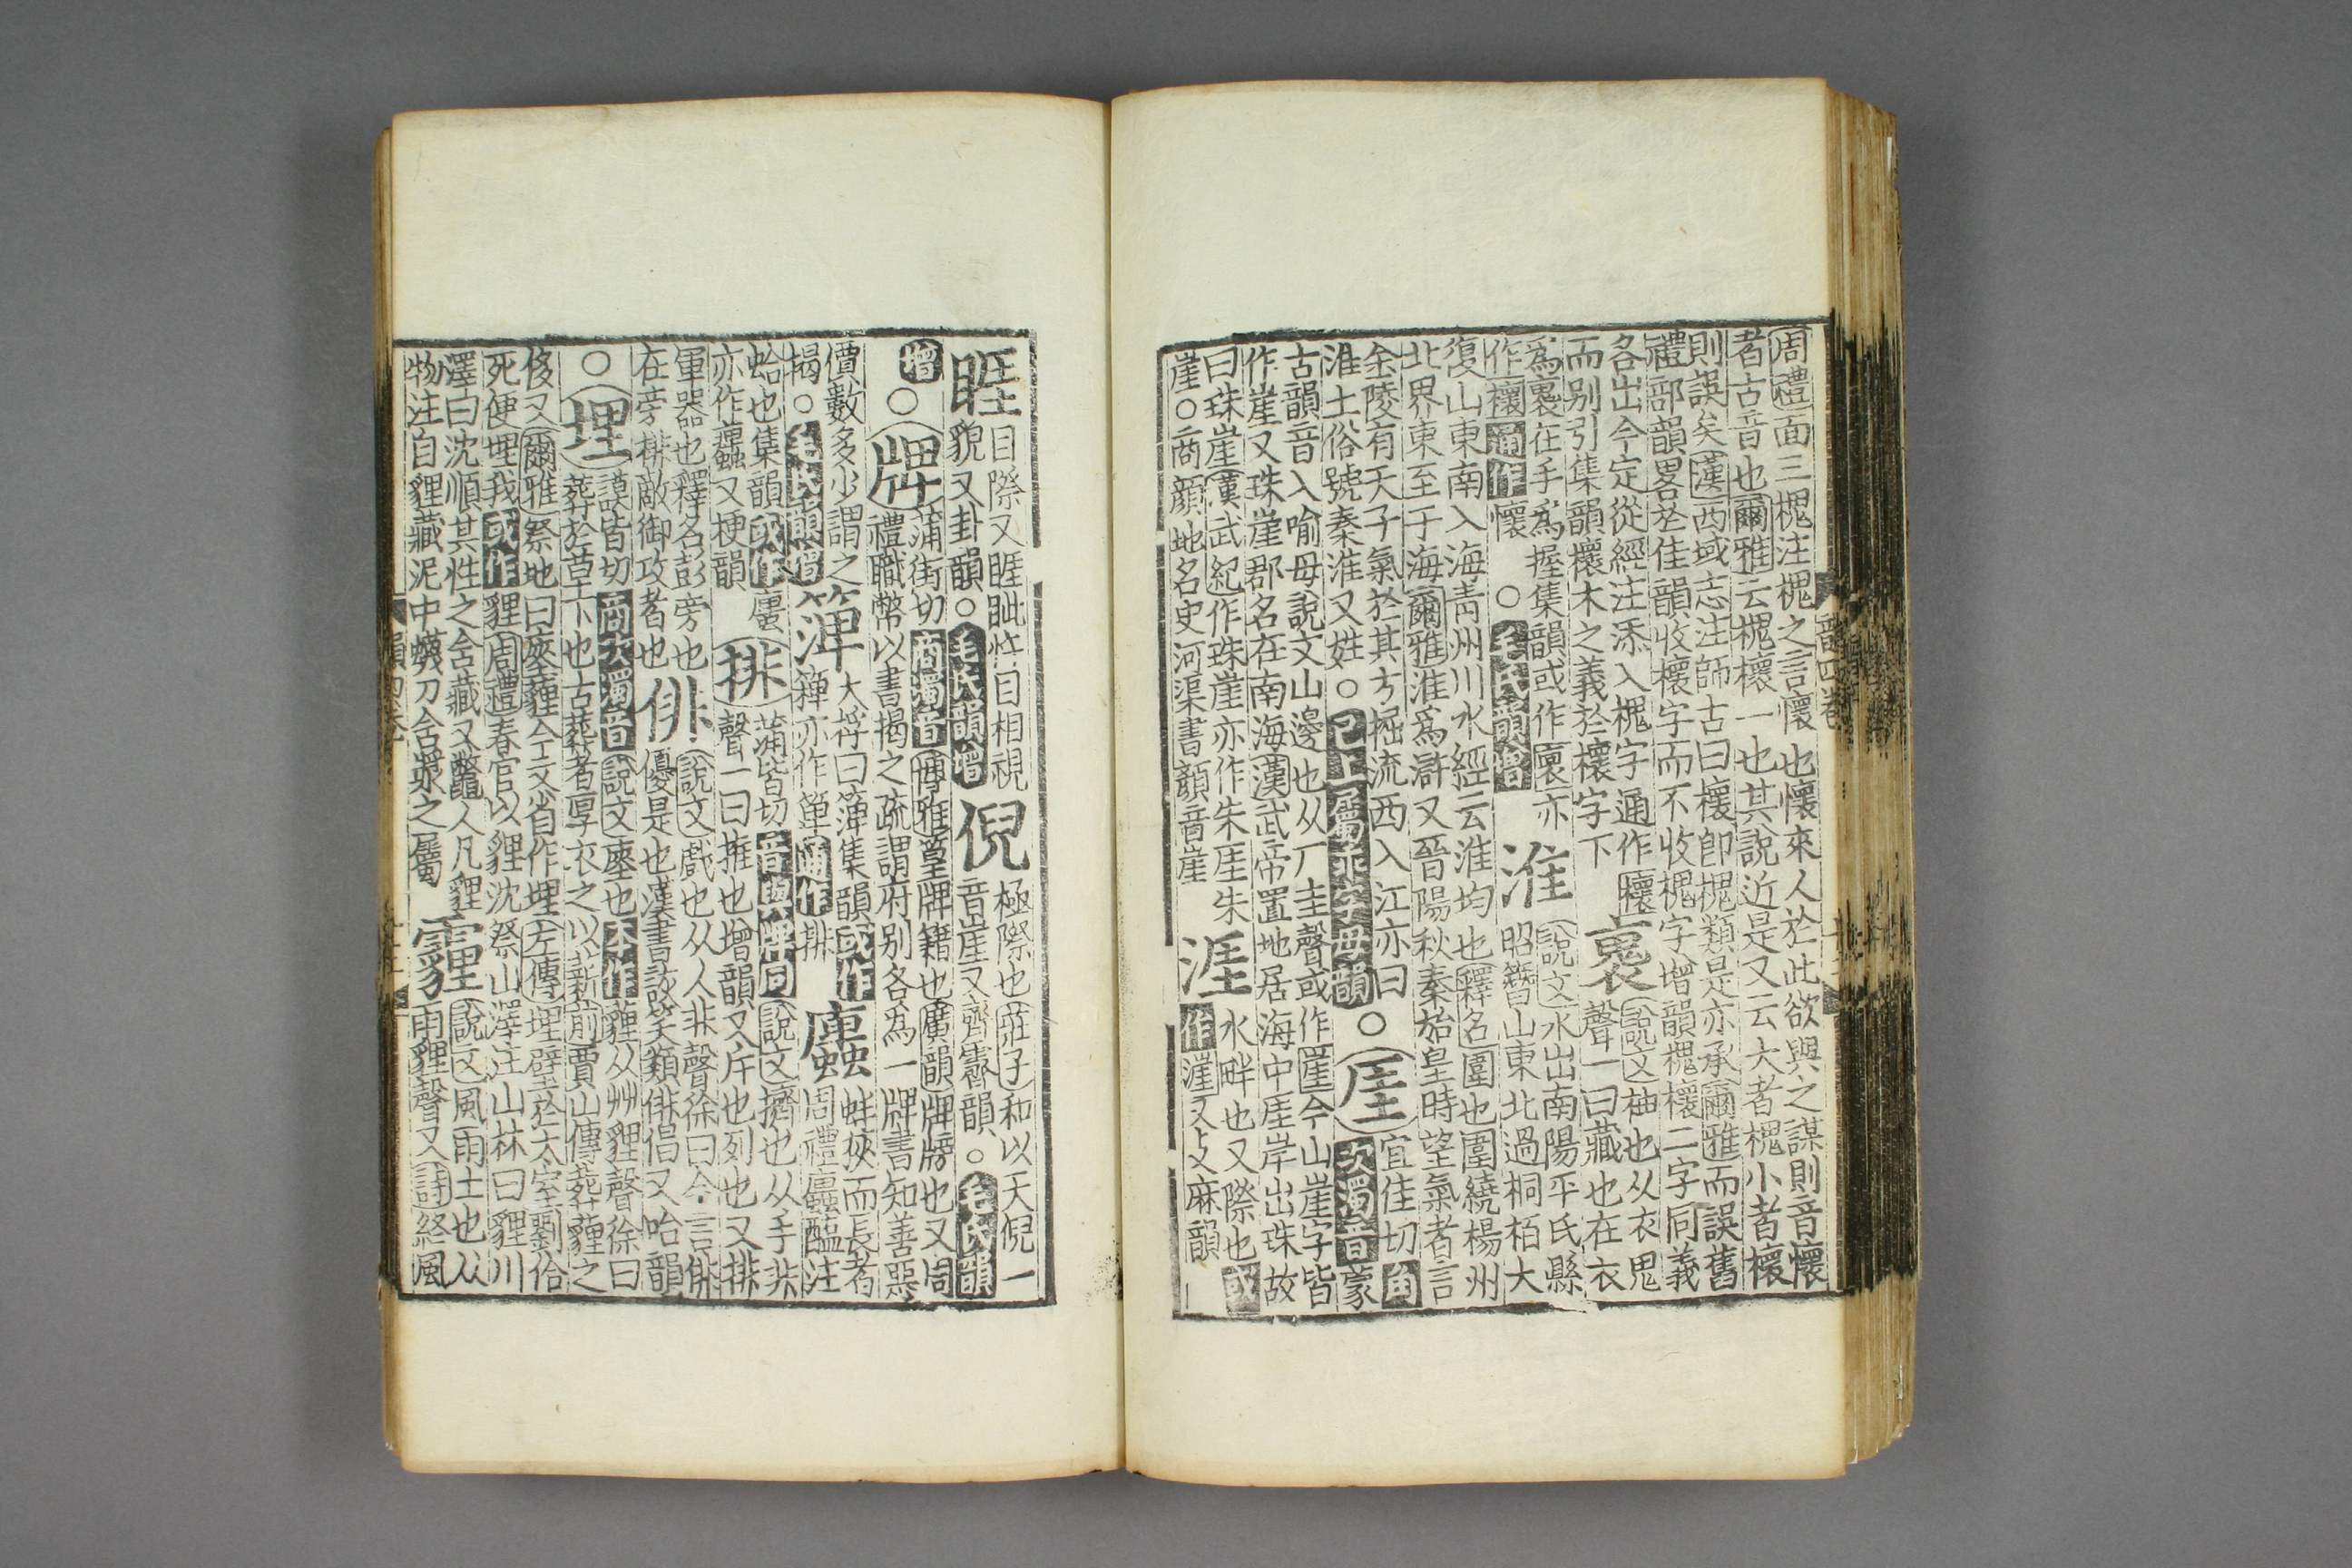 周禮面三槐注槐之言懷也懷來人於此欲與之謀則音懷
者古音也爾雅云槐櫰一也其說近是又云大者槐小者櫰
則誤矣漢西域志注師古曰櫰卽槐類是亦承爾雅而誤舊
禮部韻畧於佳韻收櫰字而不收槐字增韻槐櫰二字同義
各出今定從經注添入槐字通作櫰
而別引集韻櫰木之義於櫰字下
褱
說文袖也从衣鬼
聲一曰藏也在衣
爲褱在手爲握集韻或作裏亦
作櫰通作懷 ○毛氏韻增
淮
說文水出南陽平氏縣
昭簪山東北過桐栢大
復山東南入海青州川水經云淮均也釋名圍也圍繞楊州
北界東至于海爾雅淮爲滸又晉陽秋秦始皇時望氣者言
金陵有天子氣於其方掘流西入江亦曰
淮土俗號秦淮又姓○已上屬非字母韻○
厓
宜佳切角
次濁音蒙
古韻音入喻母說文山邊也从厂圭聲或作崖今山崖字皆
作崖又珠崖郡名在南海漢武帝置地居海中厓岸出珠故
曰珠崖漢武紀作珠崖亦作朱厓朱
崖○商顔地名史河渠書顔音崖
涯
水畔也又際也或
作漄又支麻韻
睚
目際又睚眦忤目相視
貌又卦韻○毛氏韻增
倪
極際也莊子和以天倪一
音崖又齊霽韻○毛氏韻
增○
牌
蒲街切商濁音博雅篁牌籍也廣韻牌牓也又周
禮職幣以書揭之疏謂府別各爲一牌書知善惡
價數多少謂之
揭○毛氏韻增
箄
大桴曰箄集韻或作
簰亦作箪通作排
蠯
蚌狹而長者
周禮蠯醢注
蛤也集韻或作蜃
亦作蠯又梗韻
排
蒲皆切音與牌同說文擠也从手非
聲一曰推也增韻又斥也列也又排
軍器也釋名彭旁也
在旁排敵御攻者也
俳
說文戲也从人非聲徐曰今言俳
優是也漢書詼笑類俳倡又咍韻
○
埋
謨皆切商次濁音說文瘞也本作薶从艸貍聲徐曰
葬於草下也古葬者厚衣之以薪前賈山傳葬薶之
侈又爾雅祭地曰瘞薶今文省作埋左傳埋璧於太室劉伶
死便埋我或作貍周禮春官以貍沈祭山澤注山林曰貍川
澤曰沈順其性之含藏又鼈人凡貍
物注自貍藏泥中蟣刀含漿之屬
霾
說文風雨土也从
雨貍聲又詩終風